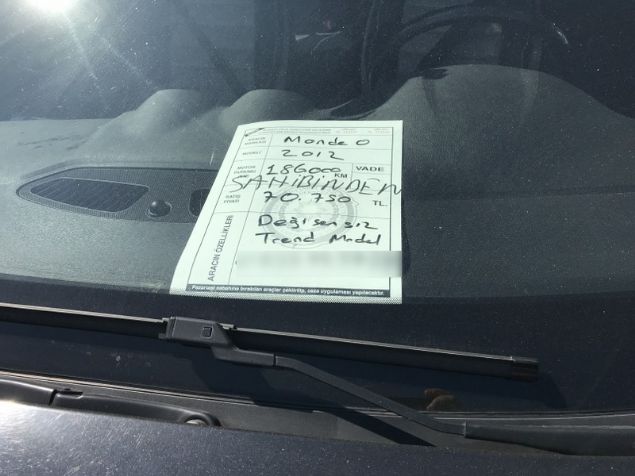 ARACIN MARKASI Monde O
MODELİ 2012
186000 KM VADE
SAHİBİNDEN
SATIŞ FİYATI 70.750 TL
ARACIN ÖZELLİKLERİ
Değişensiz
Trend Model
Pazaryeri sahasına bırakılan araçlar çektirilip, ceza uygulaması yapılacaktır.